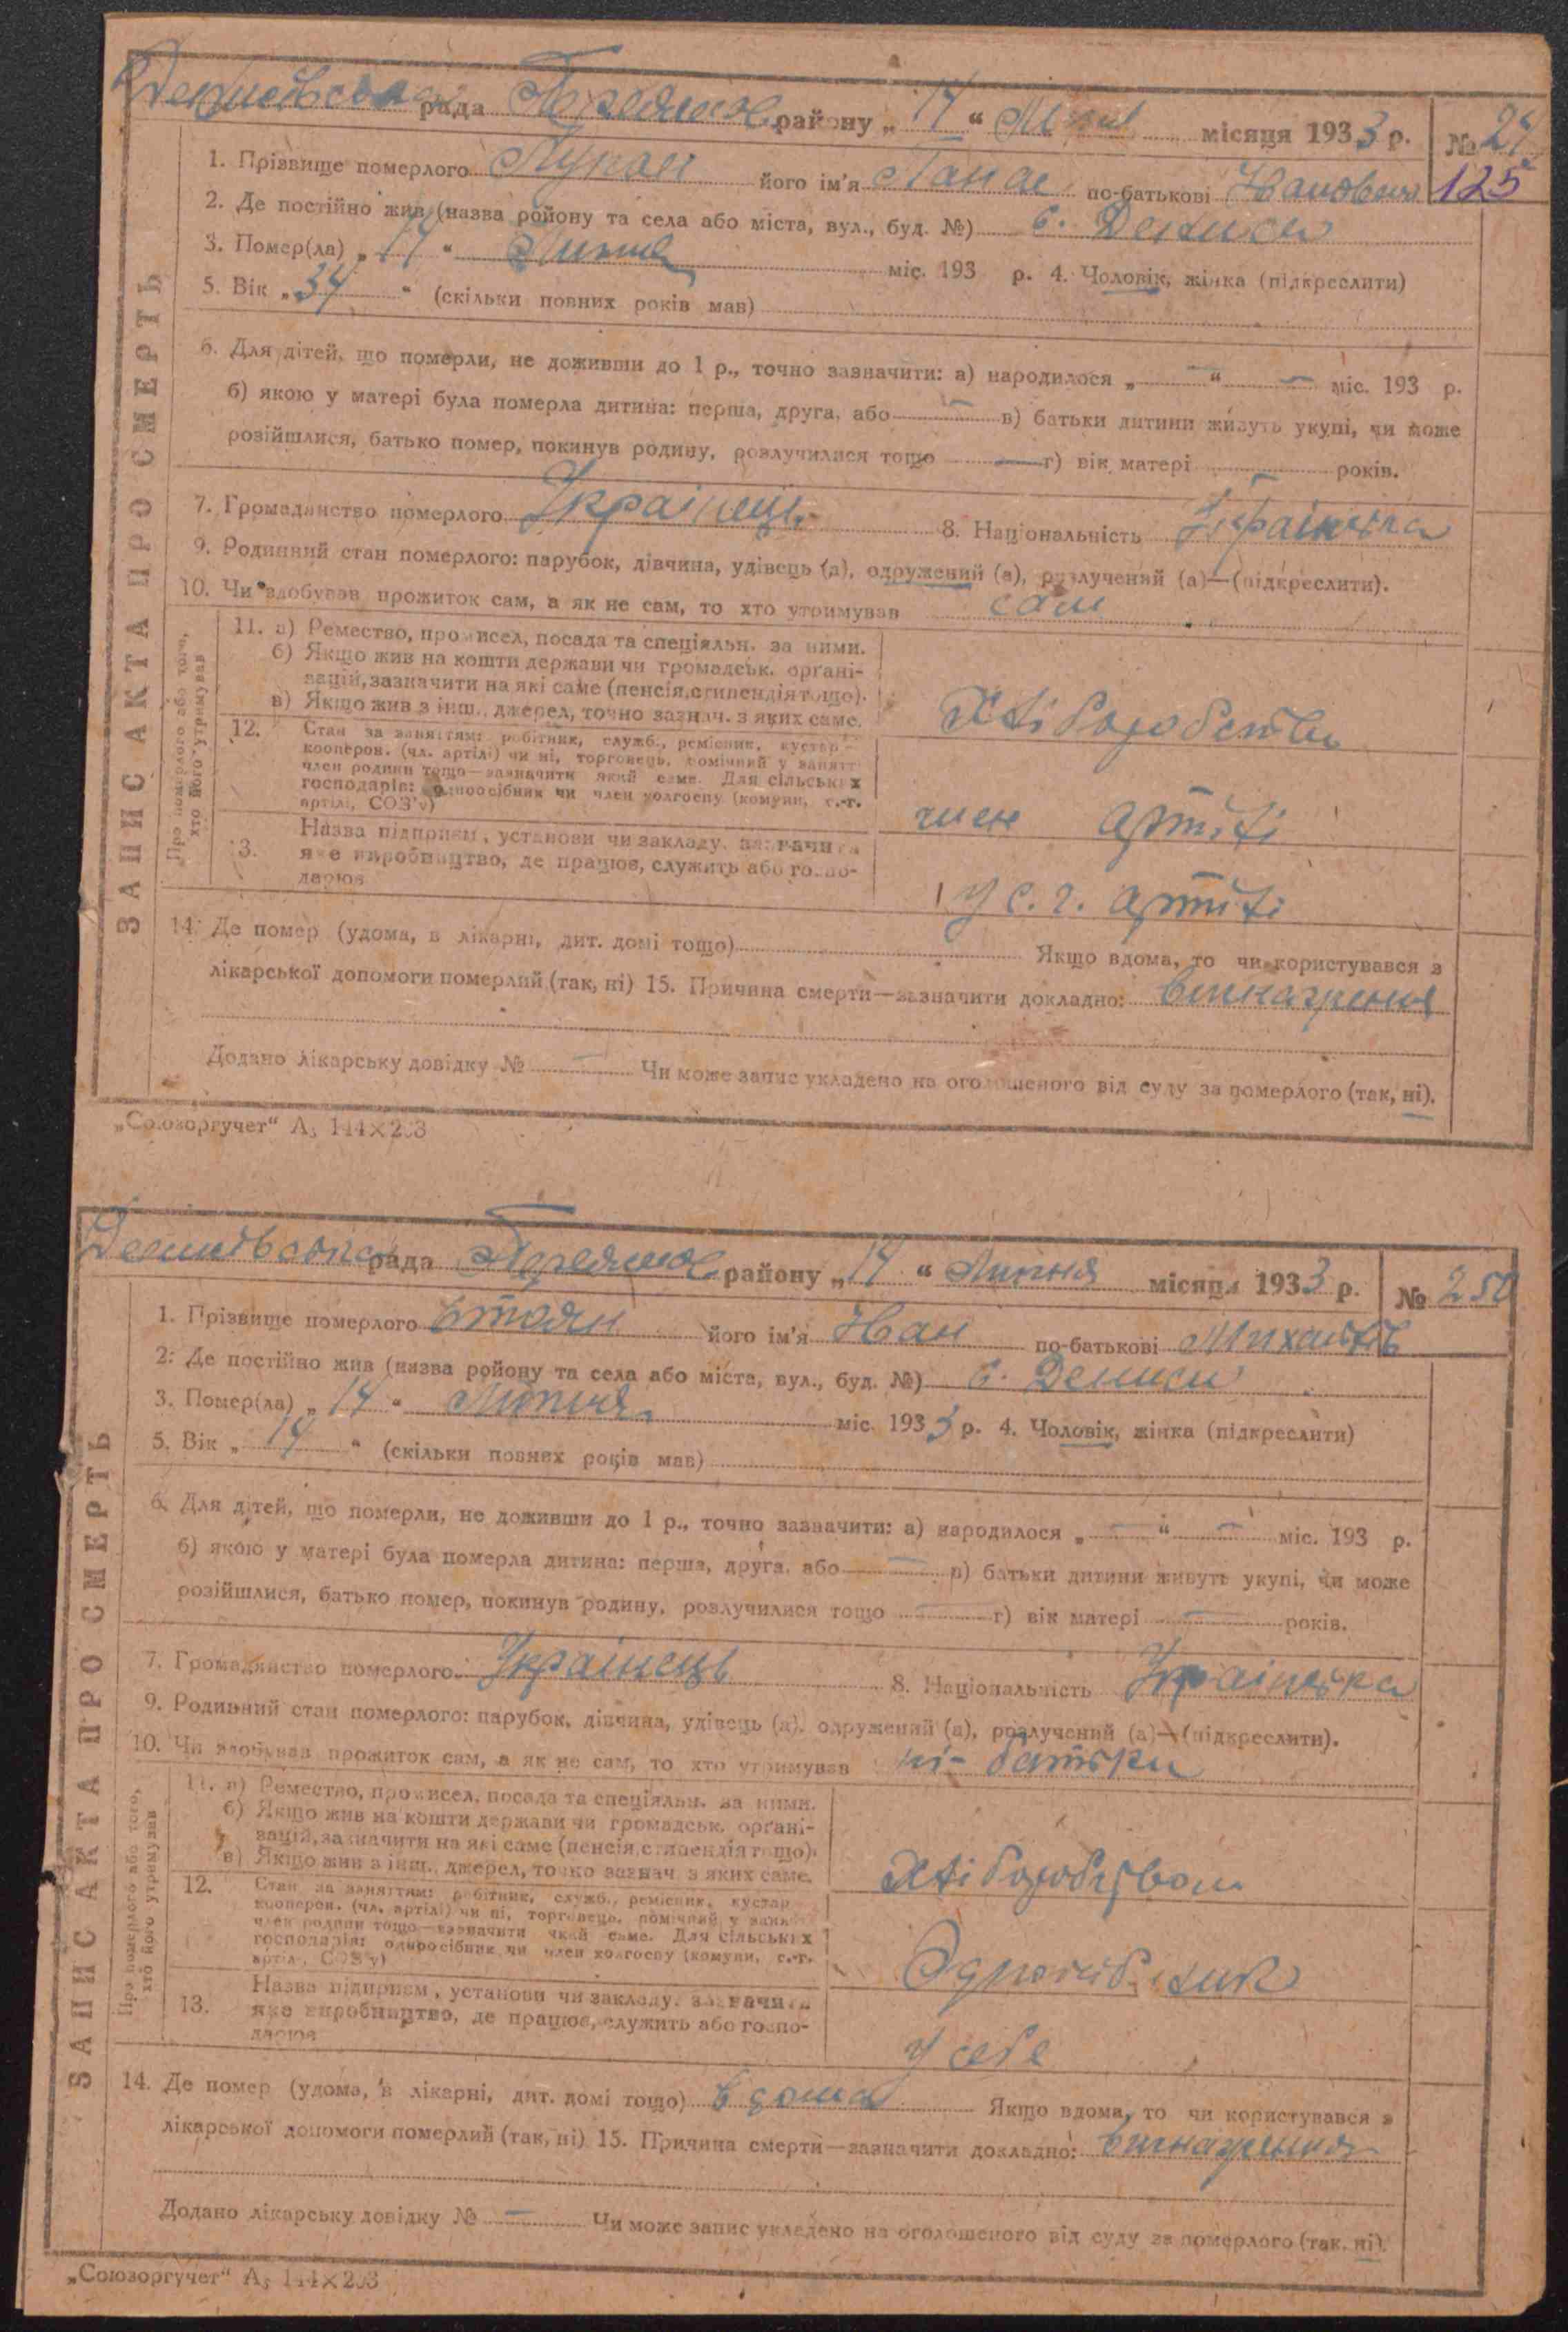 Денисівська рада Переяслов району „ 14 “ Липня місяця 1933 р. № 24
1. Прізвище померлого Лупан його ім'я Панас по-батькові Іванович 125
2. Де постійно жив (назва ройону та села або міста, вул., буд. №) с. Дениси
3. Помер(ла) „ 14 “ Липня міс. 193 р. 4. Чоловік, жінка (підкреслити)
5. Вік „ 34 “ (скільки повних років мав)
6. Для дітей, що померли, не доживши до 1 р., точно зазначити: а) народилося „ — “ — міс. 193 р.
б) якою у матері була померла дитина: перша, друга, або — в) батьки дитини живуть укупі, чи може
розійшлися, батько помер, покинув родину, розлучилися тощо — г) вік матері — років.
7. Громадянство померлого Українець 8. Національність Українска
9. Родинний стан померлого: парубок, дівчина, удівець (а), одружений (а), розлучений (а)—(підкреслити).
10. Чи здобував прожиток сам, а як не сам, то хто утримував сам
ЗАПИС АКТА ПРО СМЕРТЬ
Про померлого або того,
хто його утримував
11. а) Ремество, промисел, посада та спеціяльн. за ними.
б) Якщо жив на кошти держави чи громадськ. орґані-
зацій, зазначити на які саме (пенсія, стипендія тощо).
в) Якщо жив з інш. джерел, точно зазнач. з яких саме.
Хліборобство
12. Стан за заняттям: робітник, служб., ремісник, кустар
кооперов. (чл. артілі) чи ні, торговець, помічний у занятт
член родини тощо—зазначити який саме. Для сільських
господарів: одноосібник чи член колгоспу (комуни, с.-г.
артілі, СОЗ'у)
член артілі
13. Назва підприєм., установи чи закладу, зазначити
яке виробництво, де працює, служить або госпо-
дарює
у с. г. артілі
14. Де помер (удома, в лікарні, дит. домі тощо) Якщо вдома, то чи користувався з
лікарської допомоги померлий (так, ні) 15. Причина смерти—зазначити докладно: виснаження
Додано лікарську довідку № — Чи може запис укладено на оголошеного від суду за померлого (так, ні).
„Союзоргучет“ А5 144×203
Денисівська рада Переяслов району „ 14 “ Липня місяця 1933 р. № 250
1. Прізвище померлого Стоян його ім'я Іван по-батькові Михайлів
2. Де постійно жив (назва ройону та села або міста, вул., буд. №) с. Дениси
3. Помер(ла) „ 14 “ Липня міс. 1933 р. 4. Чоловік, жінка (підкреслити)
5. Вік „ 14 “ (скільки повних років мав)
6. Для дітей, що померли, не доживши до 1 р., точно зазначити: а) народилося „ — “ — міс. 193 р.
б) якою у матері була померла дитина: перша, друга, або — в) батьки дитини живуть укупі, чи може
розійшлися, батько помер, покинув родину, розлучилися тощо — г) вік матері — років.
7. Громадянство померлого Українець 8. Національність Українська
9. Родинний стан померлого: парубок, дівчина, удівець (а), одружений (а), розлучений (а)—(підкреслити).
10. Чи здобував прожиток сам, а як не сам, то хто утримував ні - батьки
ЗАПИС АКТА ПРО СМЕРТЬ
Про померлого або того,
хто його утримував
11. а) Ремество, промисел, посада та спеціяльн. за ними.
б) Якщо жив на кошти держави чи громадськ. орґані-
зацій, зазначити на які саме (пенсія, стипендія тощо).
в) Якщо жив з інш. джерел, точно зазнач. з яких саме.
Хліборобством
12. Стан за заняттям: робітник, служб., ремісник, кустар
кооперов. (чл. артілі) чи ні, торговець, помічний у занят
член родини тощо—зазначити який саме. Для сільських
господарів: одноосібник чи член колгоспу (комуни, с.-г.
артілі, СОЗ'у)
Одноосібник
13. Назва підприєм., установи чи закладу, зазначити
яке виробництво, де працює, служить або госпо-
дарює
у себе
14. Де помер (удома, в лікарні, дит. домі тощо) вдома Якщо вдома, то чи користувався з
лікарської допомоги померлий (так, ні) 15. Причина смерти—зазначити докладно: виснаження
Додано лікарську довідку № — Чи може запис укладено на оголошеного від суду за померлого (так, ні).
„Союзоргучет“ А5 144×203